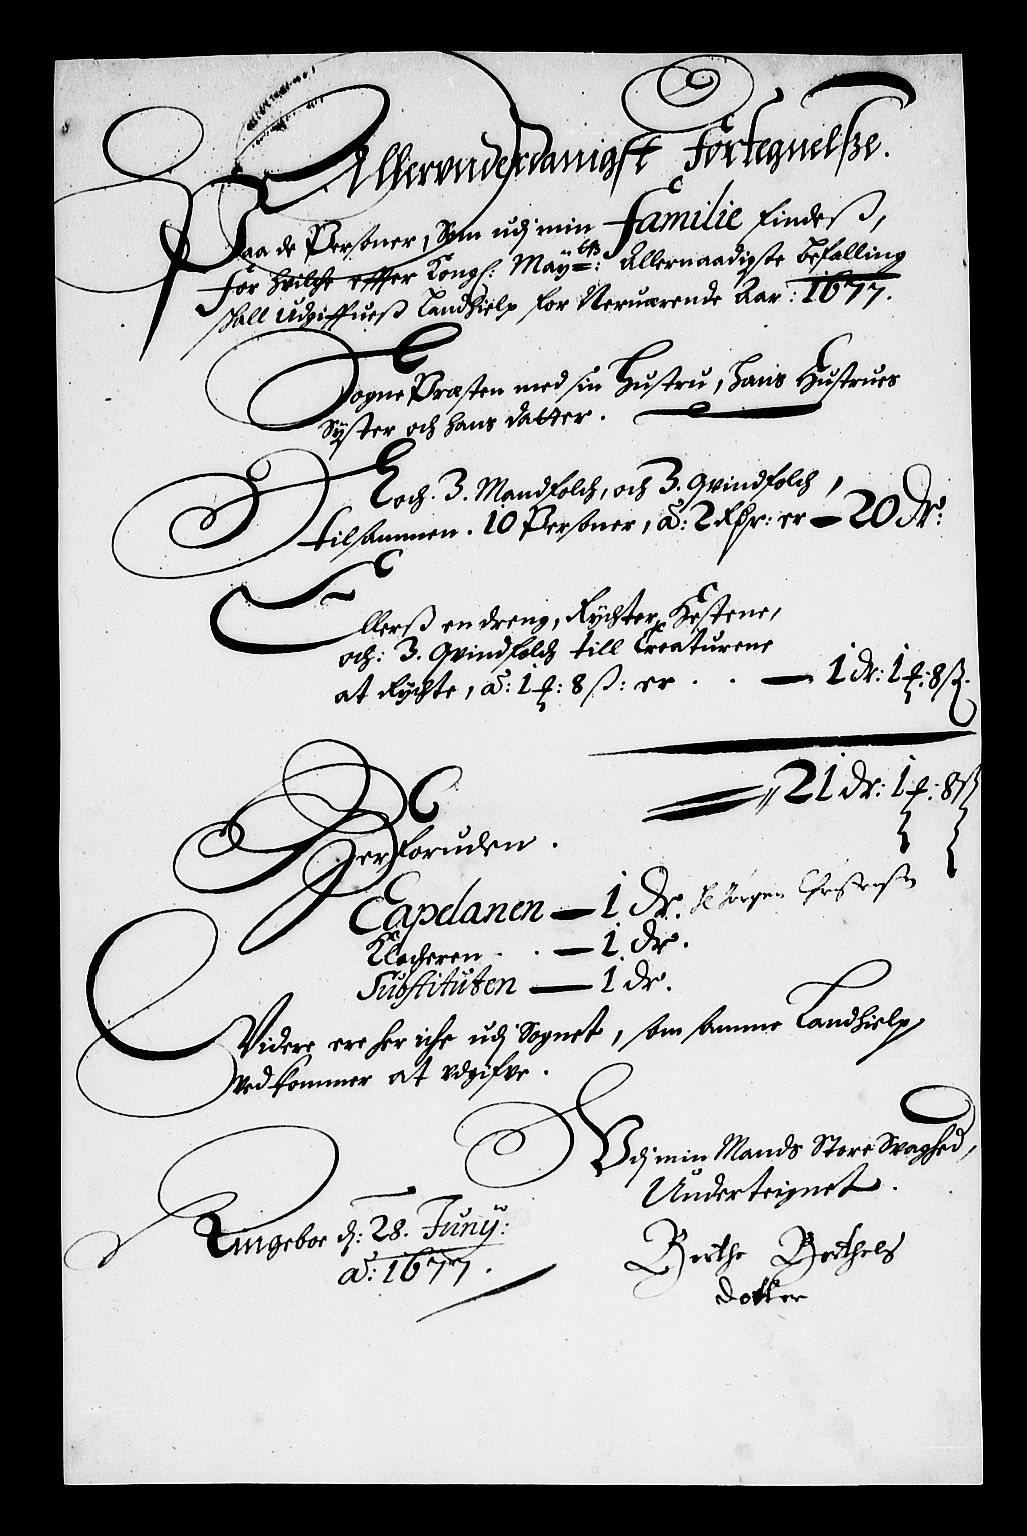 Allervnderdanigst Fortegnelsze.
Paa de Persohner, Som udj min Familie findesz,
for hvilche effter Kongl: Mayts: Allernaadigste befalling
skall Udgiffuesz Landhielp for Neruærende Aar: 1677.
Sogne Præsten med sin Hustru, hans Hustrues
Syster och hans datter.
Noch. 3. Mandfolch, och 3. Qvindfolch,
tilsammen. 10 Personer, â: 2 Rhr: er — 20 dr:
Ellersz en dreng, Rychter Hestene,
och: 3. Qvindfolch till Creaturene
at Rychte, â: 1 ƪ: 8 sz: er . . — 1 dr: 1 ƪ: 8 sz.
21 dr: 1 ƪ: 8 sz
Herforuden.
Capelanen — 1 dr. Hr Jørgen
Klocheren . . — 1 dr.
Substituten — 1 dr.
Videre ere her iche udj Sognet, som samme Landhielp
vedkommer at vdgifve.
Vdj min Mands Store Svaghed,
Underteignet.
Ringeboe d: 28. Junij:
Aº: 1677.
Birthe Berthels
dotter